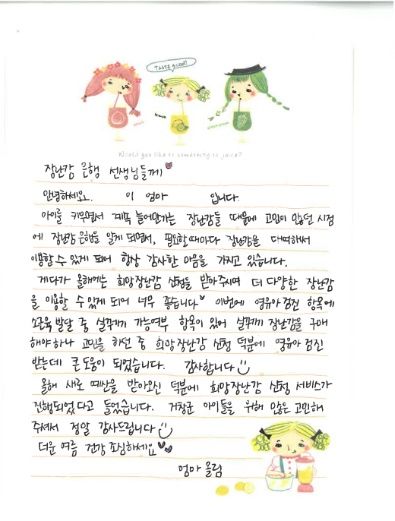 TASTE GOOD!
Would you like to something to juice?
장난감 은행 선생님들께
안녕하세요. 이 엄마 입니다.
아이를 키우면서 계속 늘어나가는 장난감들 때문에 고민이 많던 시점
에 장난감 은행을 알게 되면서, 필요할때마다 장난감을 대여해서
이용할 수 있게 되어 항상 감사한 마음을 가지고 있습니다.
게다가 올해에는 희망장난감 신청을 받아주시며 더 다양한 장난감
을 이용할 수 있게 되어 너무 좋습니다 이번에 영유아검진 항목에
소근육 발달 중 실꿰기 가능여부 항목이 있어 실꿰기 장난감을 구매
해야하나 고민을 하던 중 희망장난감 신청 덕분에 영유아 검진
받는데 큰 도움이 되었습니다. 감사합니다
올해 새로 예산을 받아오신 덕분에 희망장난감 신청 서비스가
진행되었다고 들었습니다. 거창군 아이들을 위해 많은 고민해
주셔서 정말 감사드립니다
더운 여름 건강 조심하세요
엄마 올림